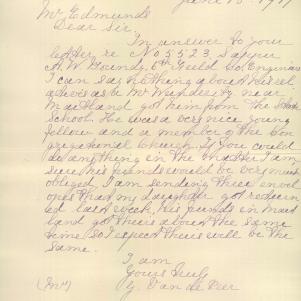 June 18 - 1917
Mr Edmunds
Dear Sir.
In answer to your
letter re No 5523 Sapper
A. W. Goundy, 5th Field Co, Engineers
I can say nothing about his rel
atives as a Mr Wunderly near
Maitland got him from the State
School. He was a very nice young
fellow and a member of the Con
gregational Church. If you could
do anything in the matter I am
sure his friends would be very much
obliged, I am sending three envel
opes that my daughter got return
ed last week, his friends in Mait
land got theirs about the same
time. So I expect theirs will be the
same.
I am
Yours Truly
(Mrs) Van de Veer